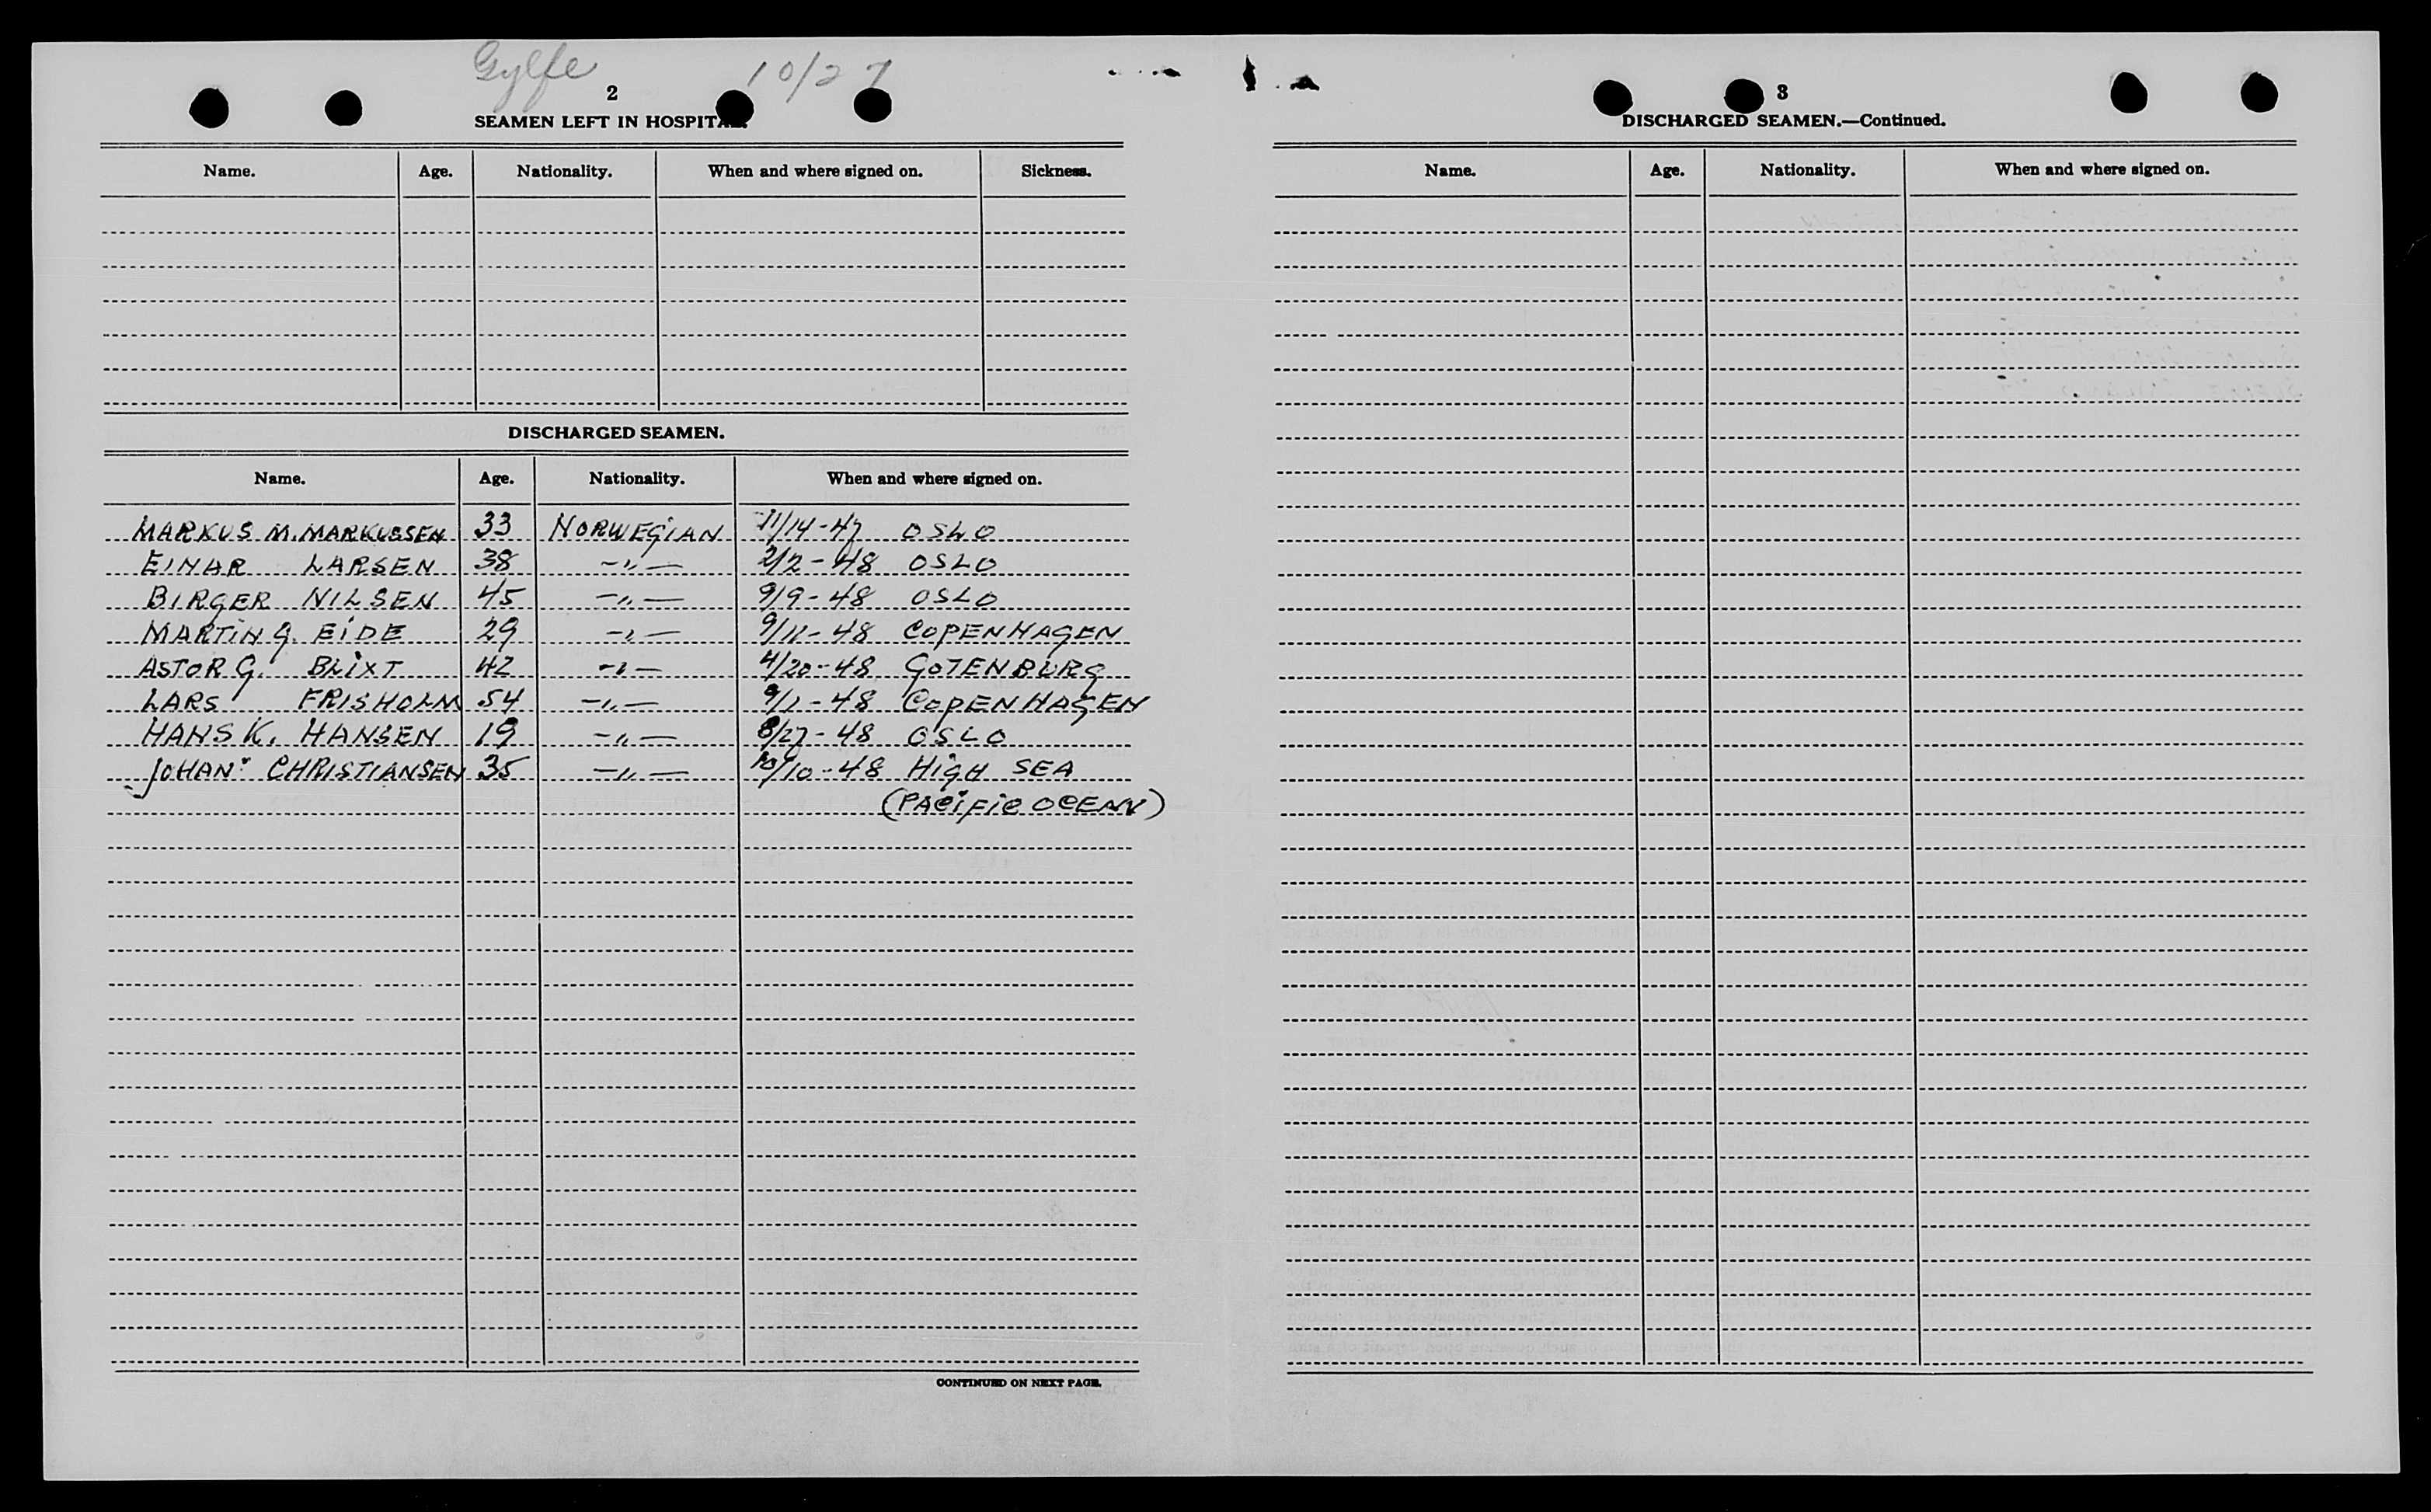 Gylfe 10/27
2
SEAMEN LEFT IN HOSPITAL.
Name. Age. Nationality. When and where signed on. Sickness.
DISCHARGED SEAMEN.
Name. Age. Nationality. When and where signed on.
MARKUS M. MARKUSSEN 33 NORWEGIAN 11/14-47 OSLO
EINAR LARSEN 38 -"- 2/2-48 OSLO
BIRGER NILSEN 45 -"- 9/9-48 OSLO
MARTIN G. EIDE 29 -"- 9/11-48 COPENHAGEN
ASTOR G. BLIXT 42 -"- 4/20-48 GOTENBURG
LARS FRISHOLM 54 -"- 9/1-48 COPENHAGEN
HANS K. HANSEN 19 -"- 8/27-48 OSLO
JOHAN CHRISTIANSEN 35 -"- 10/10-48 HIGH SEA
(PACIFIC OCEAN)
CONTINUED ON NEXT PAGE.
3
DISCHARGED SEAMEN.—Continued.
Name. Age. Nationality. When and where signed on.